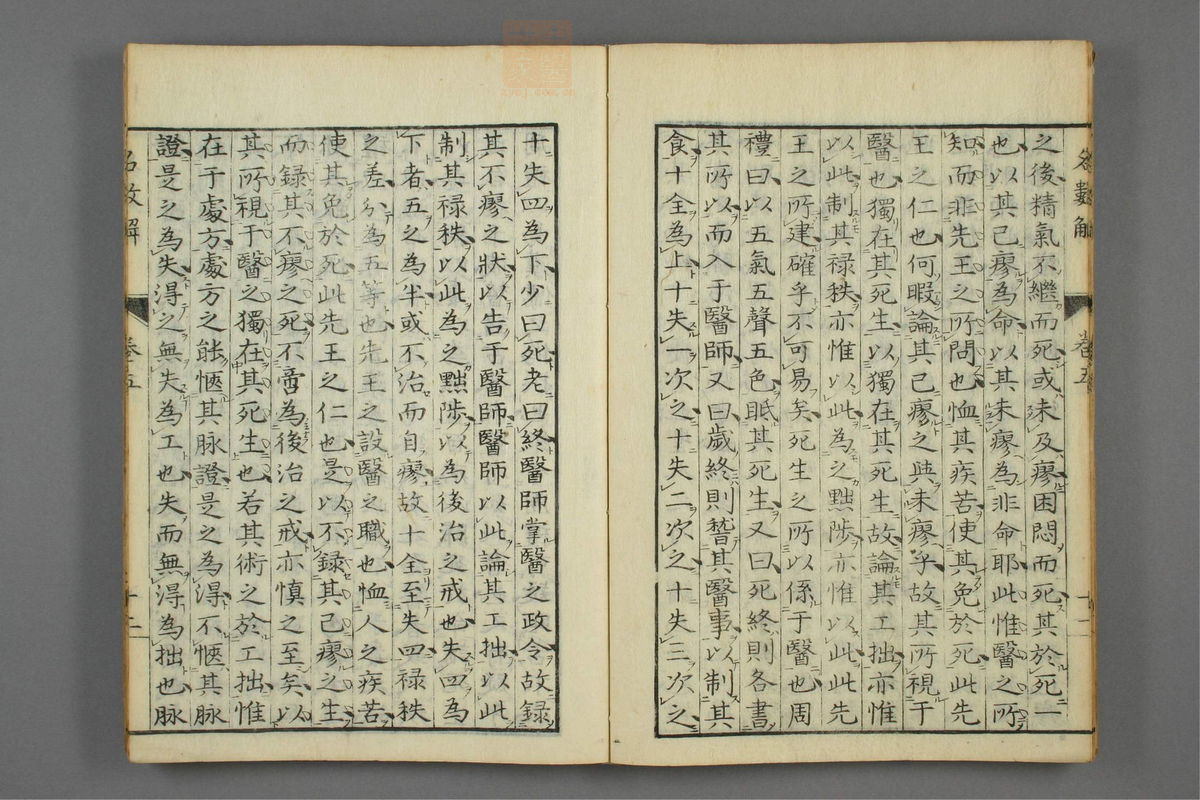 名數解 卷五 十一
之後精氣不繼而死或未及瘳困悶而死其於死一
也以其已瘳為命以其未瘳為非命耶此惟醫之所
知而非先王之所問也恤其疾苦使其免於死此先
王之仁也何暇論其已瘳之與未瘳乎故其所視于
醫也獨在其死生以獨在其死生故論其工拙亦惟
以此制其祿秩亦惟以此為之黜陟亦惟以此此先
王之所建確乎不可易矣死生之所以係于醫也周
禮曰以五氣五聲五色眡其死生又曰死終則各書
其所以而入于醫師又曰歲終則稽其醫事以制其
食十全為上十失一次之十失二次之十失三次之
十失四為下少曰死老曰終醫師掌醫之政令故錄
其不瘳之狀以告于醫師醫師以此論其工拙以此
制其祿秩以此為之黜陟以為後治之戒也失四為
下者五之為半或不治而自瘳故十全至失四祿秩
之差分為五等也先王之設醫之職也恤人之疾苦
使其免於死此先王之仁也是以不錄其已瘳之生
而錄其不瘳之死不啻為後治之戒亦慎之至矣以
其所視于醫之獨在其死生也若其術之於工拙惟
在于處方處方之能愜其脉證是之為得不愜其脉
證是之為失得之無失為工也失而無得為拙也脉
名數解 卷五